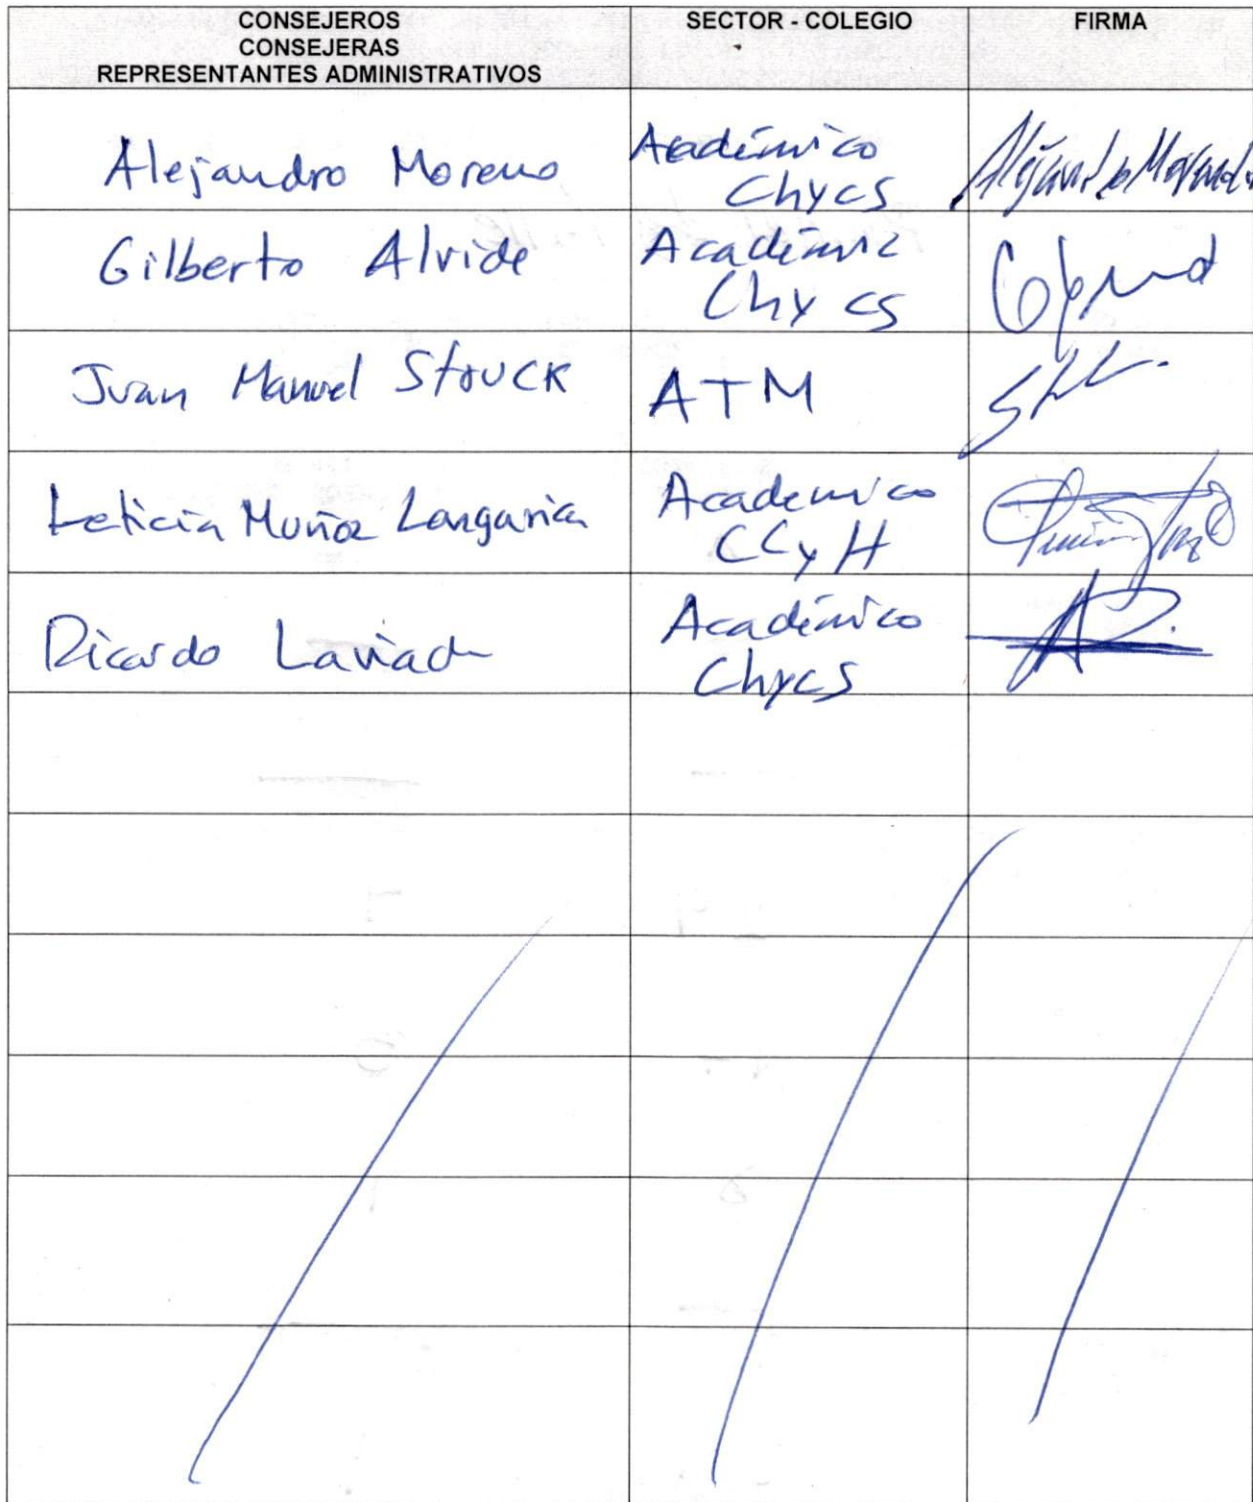 CONSEJEROS
CONSEJERAS
REPRESENTANTES ADMINISTRATIVOS
SECTOR - COLEGIO
FIRMA
Alejandro Moreno
Académico
Chycs
Gilberto Alvide
Académic
Chy cs
Juan Manuel Struck
ATM
Leticia Muñoz Langarica
Academico
CCyH
Ricardo
Académico
Chycs